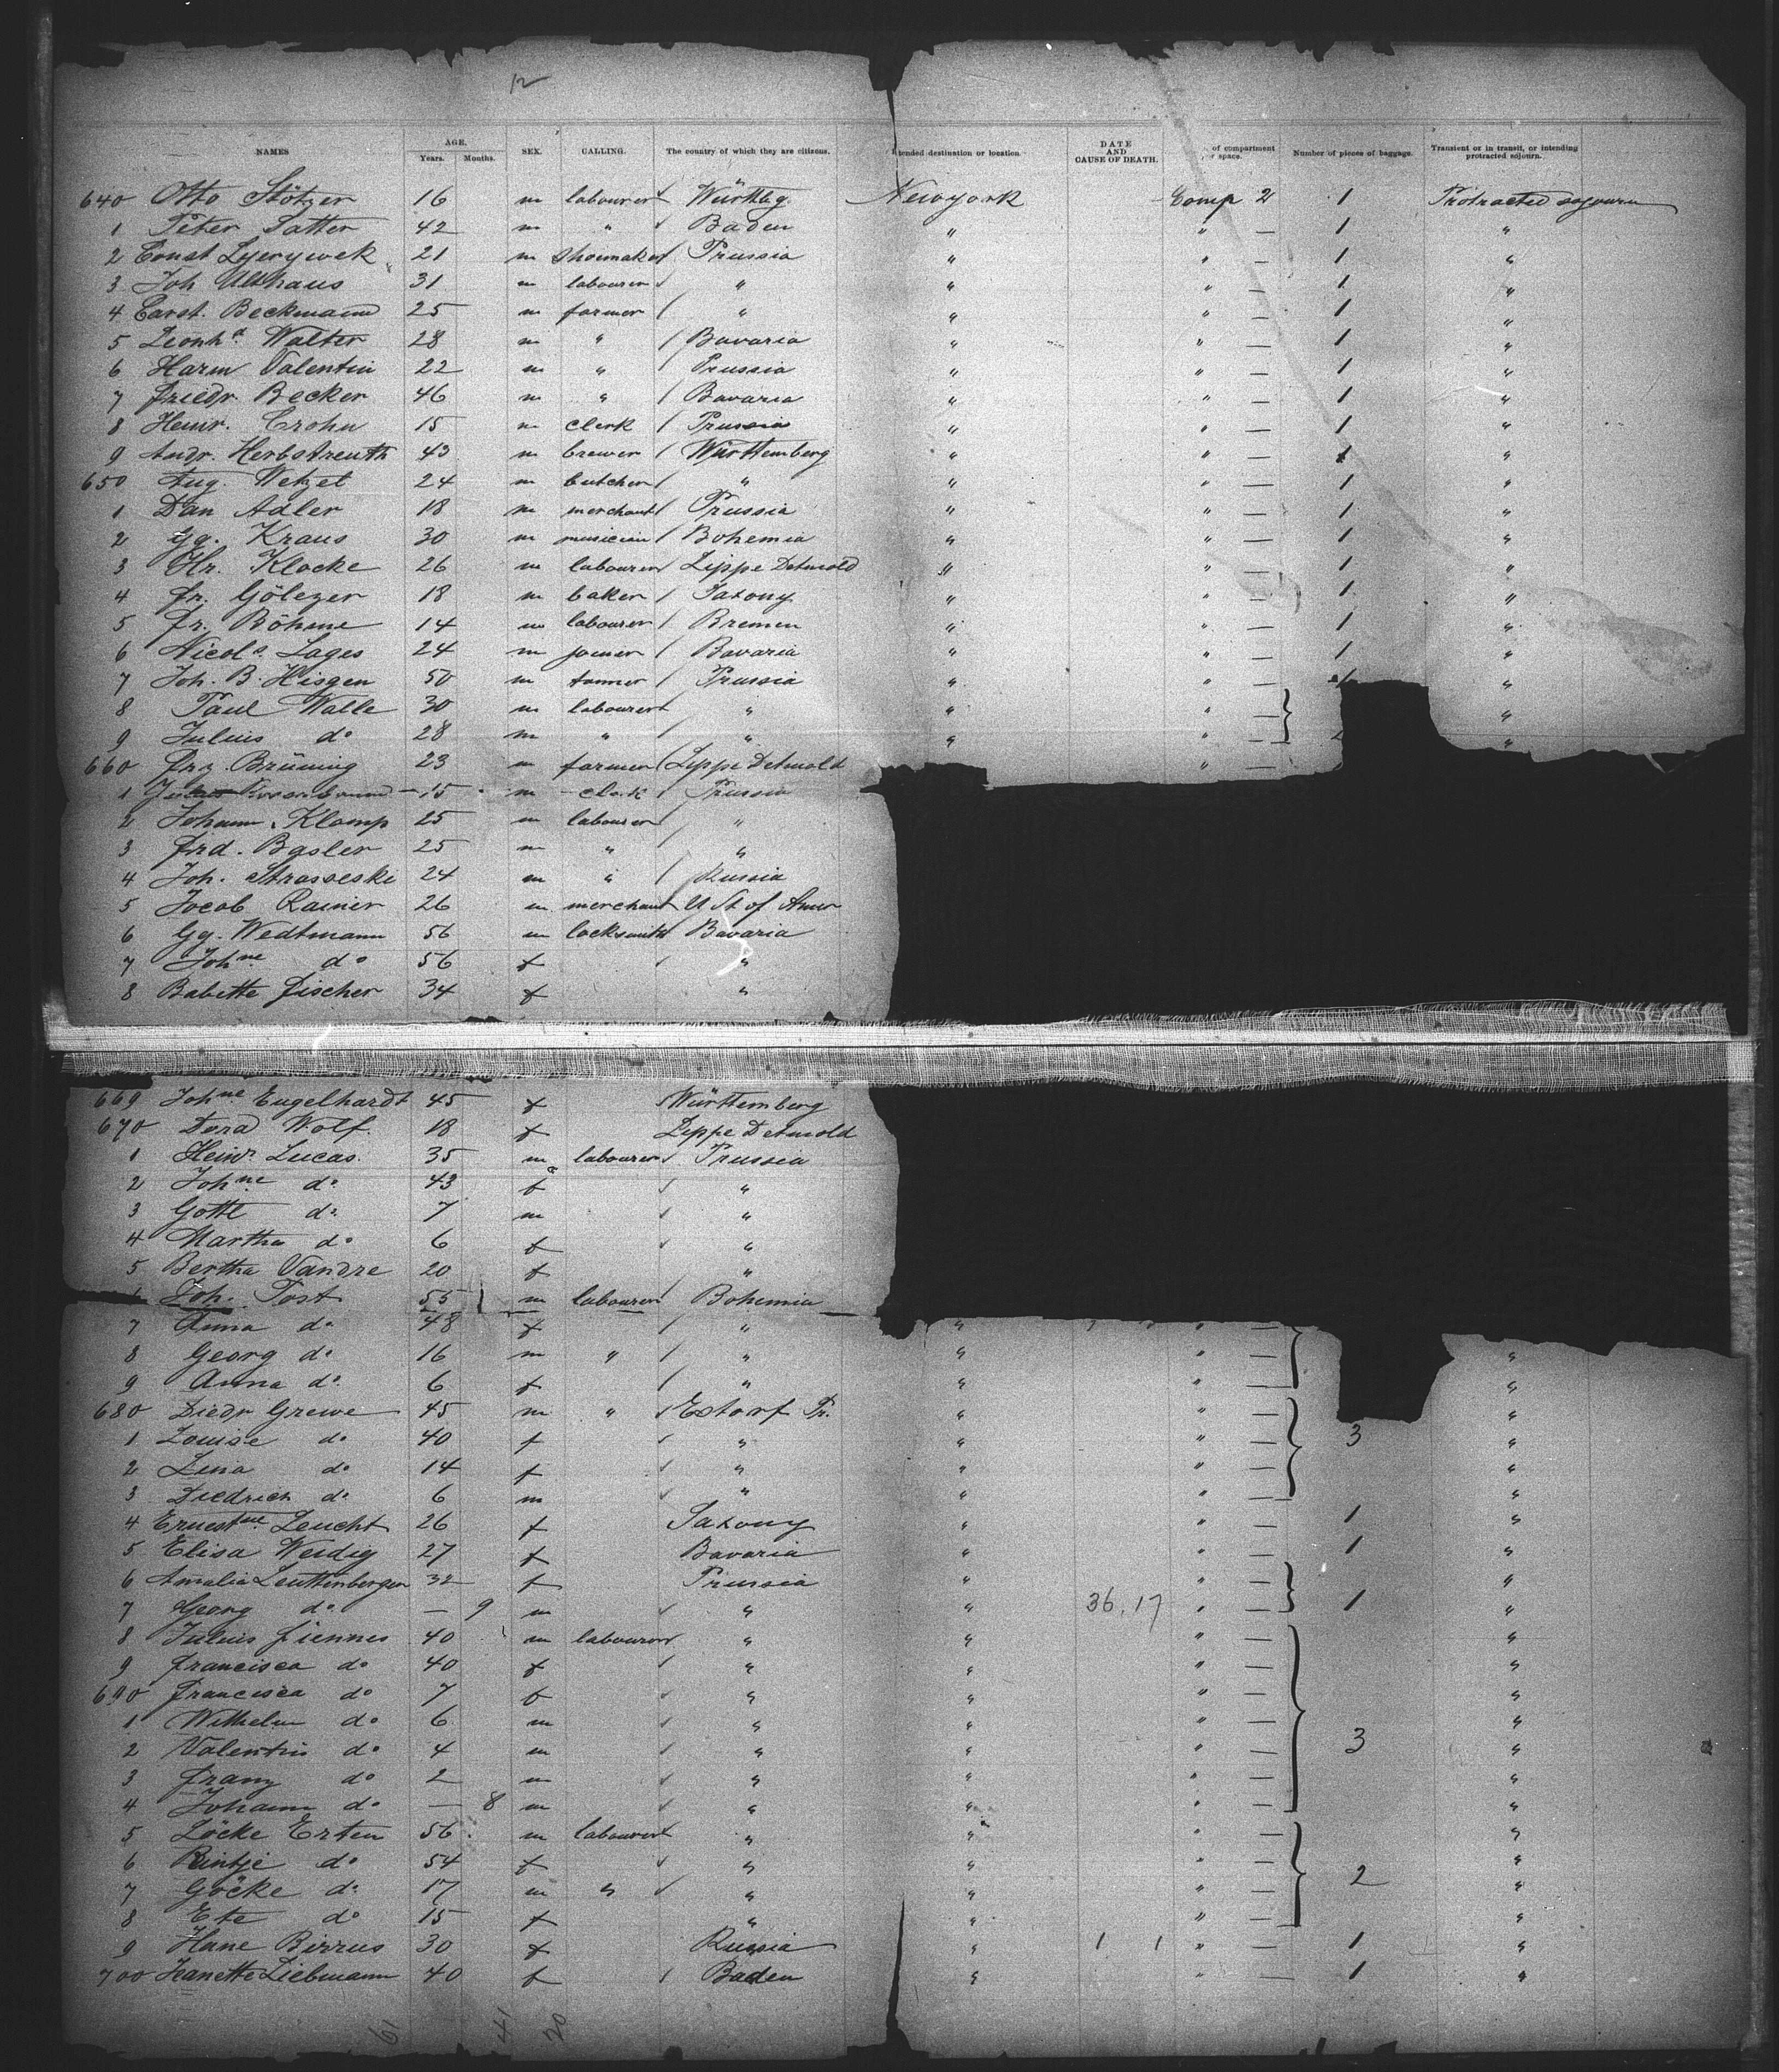 12
NAMES AGE. Years. Months. SEX. CALLING. The country of which they are citizens. tended destination or location. DATE AND CAUSE OF DEATH. of compartment or space. Number of pieces of baggage. Transient or in transit, or intending protracted sojourn.
640 Otto Stötzer 16 m labourer Württbg. Newyork Comp 2 1 Protracted sojourn
1 Peter Satter 42 m " Baden " " — 1 "
2 Ernst 21 m shoemaker Prussia " " — 1 "
3 Joh Althaus 31 m labourer " " " — 1 "
4 Carst. Beckmann 25 m farmer " " " — 1 "
5 Leonhd. Walter 28 m " Bavaria " " — 1 "
6 Harm Valentin 22 m " Prussia " " — 1 "
7 Friedr. Becker 46 m " Bavaria " " — 1 "
8 Heinr. Crohn 15 m clerk Prussia " " — 1 "
9 Andr. Herbstreuth 43 m brewer Württemberg " " — 1 "
650 Aug. Wetzel 24 m butcher " " " — 1 "
1 Dan Adler 18 m merchant Prussia " " — 1 "
2 Gg. Kraus 30 m musician Bohemia " " — 1 "
3 Hr. Klocke 26 m labourer Lippe Detmold " " — 1 "
4 Fr. Gölezer 18 m baker Saxony " " — 1 "
5 Fr. Böhme 14 m labourer Bremen " " — 1 "
6 Nicols. Lages 24 m joiner Bavaria " " — 1 "
7 Joh. B. Hisgen 50 m tanner Prussia " " — 1 "
8 Paul Walle 30 m labourer " " " — "
9 Julius do 28 m " " " " — "
660 Frz. Brüning 23 m farmer Lippe Detmold " —
1 15 m clerk Prussia
2 Johann Klamp 25 m labourer "
3 Frd. Basler 25 m " "
4 Joh. Strasseske 24 m " Russia
5 Jacob Rainer 26 m merchant U St of Amer
6 Gg. Wedtmann 56 m locksmith Bavaria
7 Johne do 56 f "
8 Babette Fischer 34 f "
669 Johne Engelhardt 45 f Württemberg
670 Dora Wolf. 18 f Lippe Detmold
1 Heinr. Lucas. 35 m labourer Prussia
2 Johne do 43 f "
3 Gottl do 7 m "
4 Martha do 6 f "
5 Bertha Vandre 20 f "
Joh. Post 55 m labourer Bohemia
7 Anna do 48 f " " " —
8 Georg do 16 m " " " " — "
9 Anna do 6 f " " " — "
680 Diedr Grewe 45 m " Estorf Pr. " " — "
1 Louise do 40 f " " " — 3 "
2 Lena do 14 f " " " — "
3 Diedrich do 6 m " " " — "
4 Ernestine Leucht 26 f Saxony " " — 1 "
5 Elisa Weidig 27 f Bavaria " " — 1 "
6 Amalia Leuttenberger 32 f Prussia " " — "
7 Georg do — 9 m " " 36,17 " — 1 "
8 Julius Fiennes 40 m labourer " " " — "
9 Francisca do 40 f " " " — "
690 Francisca do 7 f " " " — "
1 Wilhelm do 6 m " " " — "
2 Valentin do 4 m " " " — 3 "
3 Franz do 2 m " " " — "
4 Johann do — 8 m " " " — "
5 Löcke Erten 56 m labourer " " " — "
6 Rintje do 54 f " " " — "
7 Göcke do 17 m " " " " — 2 "
8 Ete do 15 f " " " — "
9 Hane Birrus 30 f Russia " 1 1 " — 1 "
700 Jeanette Liebmann 40 f Baden " " — 1 "
61 41 20